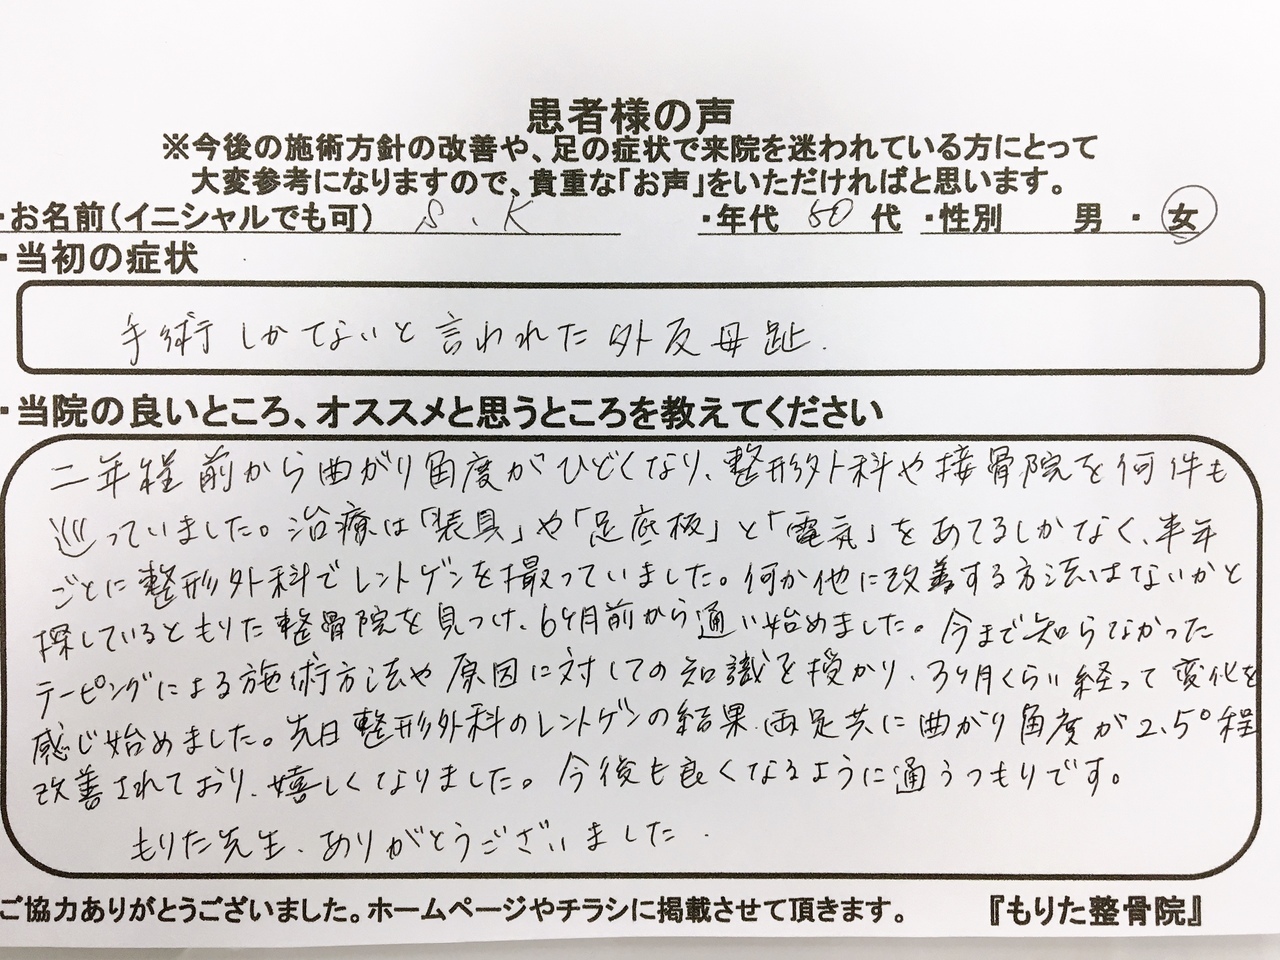 患者様の声
※今後の施術方針の改善や、足の症状で来院を迷われている方にとって
大変参考になりますので、貴重な「お声」をいただければと思います。
・お名前（イニシャルでも可） S.K ・年代 50 代 ・性別 男 ・ 女
・当初の症状
手術しかないと言われた外反母趾.
・当院の良いところ、オススメと思うところを教えてください
二年程前から曲がり角度がひどくなり、整形外科や接骨院を何件も
巡っていました。治療は「装具」や「足底板」と「電気」をあてるしかなく、半年
ごとに整形外科でレントゲンを撮っていました。何か他に改善する方法はないかと
探しているともりた整骨院を見つけ、6ヶ月前から通い始めました。今まで知らなかった
テーピングによる施術方法や原因に対しての知識を授かり、3ヶ月くらい経って変化を
感じ始めました。先日整形外科のレントゲンの結果、両足共に曲がり角度が2.5°程
改善されており、嬉しくなりました。今後も良くなるように通うつもりです。
もりた先生、ありがとうございました.
ご協力ありがとうございました。ホームページやチラシに掲載させて頂きます。 『もりた整骨院』